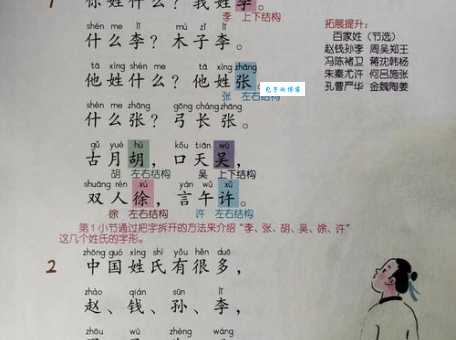 1
你姓什么？我姓李。
李 上下结构
shén me lǐ mù zǐ lǐ
什么李？木子李。
tā xìng shén me tā xìng zhāng
他姓什么？他姓张。
张 左右结构
shén me zhāng gōng cháng zhāng
什么张？弓长张。
gǔ yuè hú kǒu tiān wú
古月胡，口天吴，
胡 左右结构 吴 上下结构
shuāng rén xú yán wǔ xǔ
双人徐，言午许。
徐 左右结构 许 左右结构
第1小节通过把字拆开的方法来介绍“李、张、胡、吴、徐、许”
这几个姓氏的字形。
2
zhōng guó xìng shì yǒu hěn duō
中国姓氏有很多，
zhào qián sūn lǐ
赵、钱、孙、李，
zhōu wú zhèng wáng
拓展提升：
百家姓（节选）
赵钱孙李 周吴郑王
冯陈褚卫 蒋沈韩杨
朱秦尤许 何吕施张
孔曹严华 金魏陶姜